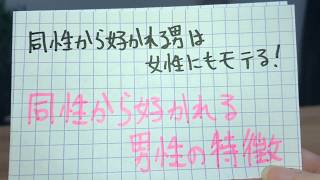 同性から好かれる男は
女性にもモテる!
同性から好かれる
男性の特徴